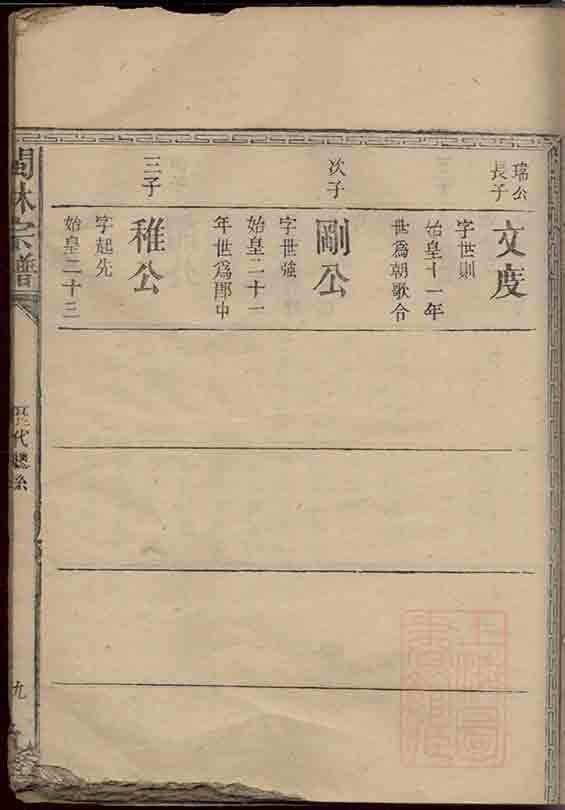 瑞公
長子
文度
字世則
始皇十一年
世爲朝歌令
次子
剛公
字世強
始皇二十一
年世爲郎中
三子
稚公
字起先
始皇二十三
林宗譜
歷代總系
九